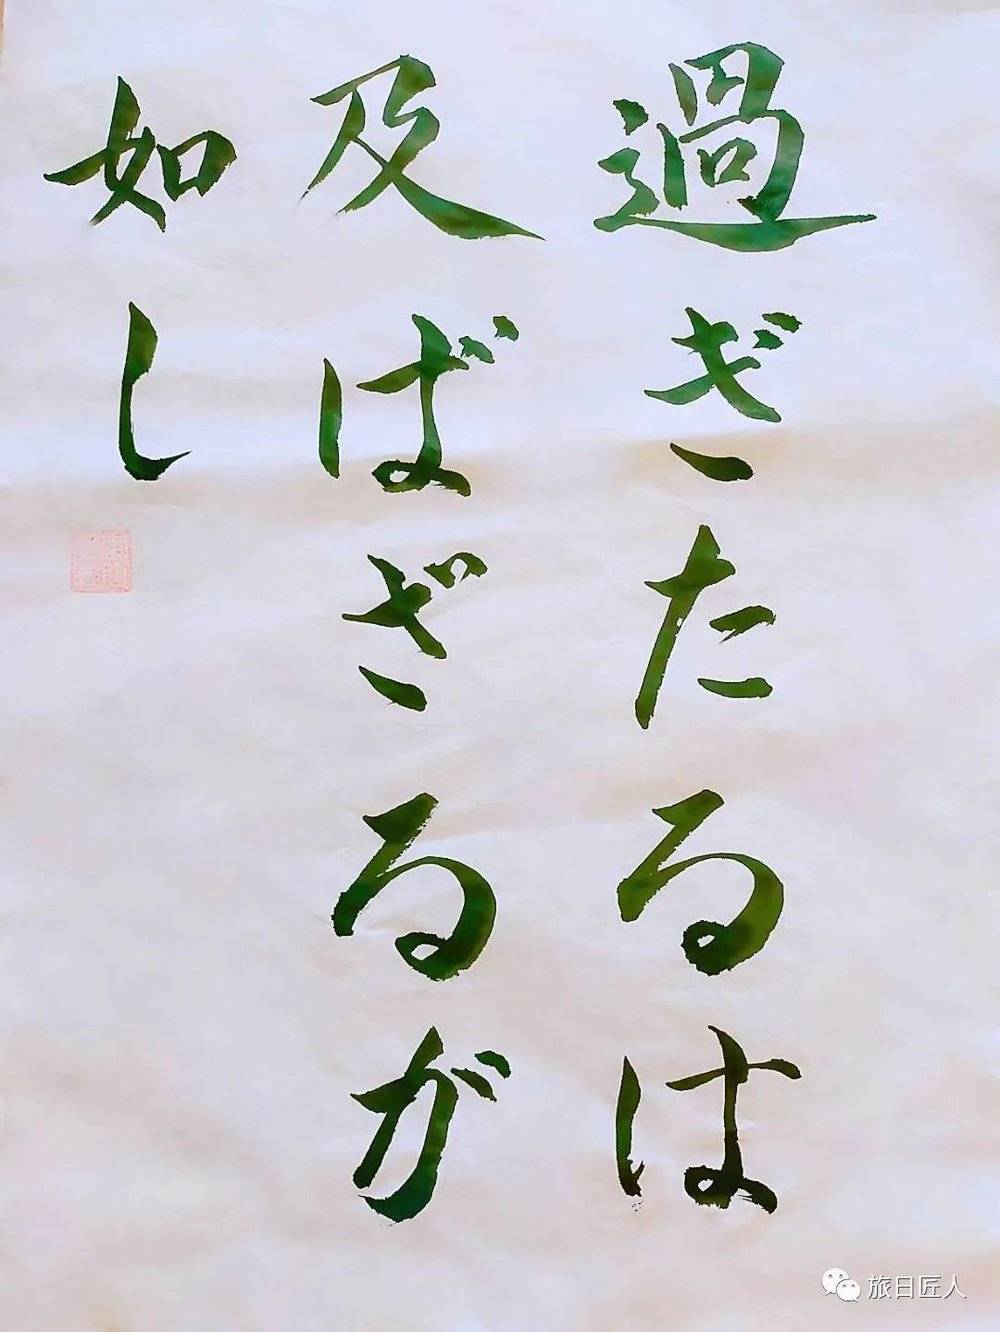 過ぎたるは
及ばざるが
如し
旅日匠人